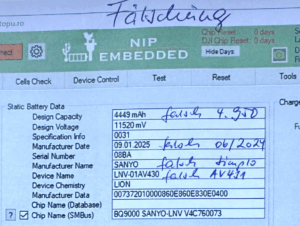 Fälschung
topu.ro
NIP
EMBEDDED
Chip Reset: 0 days
DJI Chip Reset: 0 days
Hide Days
Cells Check Device Control Test Reset Tools
Static Battery Data
Charge
Design Capacity 4449 mAh falsch 4.950
Design Voltage 11520 mV
Specification Info 0031
Manufacturer Date 09.01.2025 falsch 06/2024
Serial Number 08BA
Manufacturer Name SANYO falsch Simplo
Device Name LNV-01AV430 falsch AV431
Device Chemistry LION
Manufacturer Data 007372010000860E860E830E0400
Chip Name (Database)
? Chip Name (SMBus) BQ9000 SANYO-LNV V4C760073